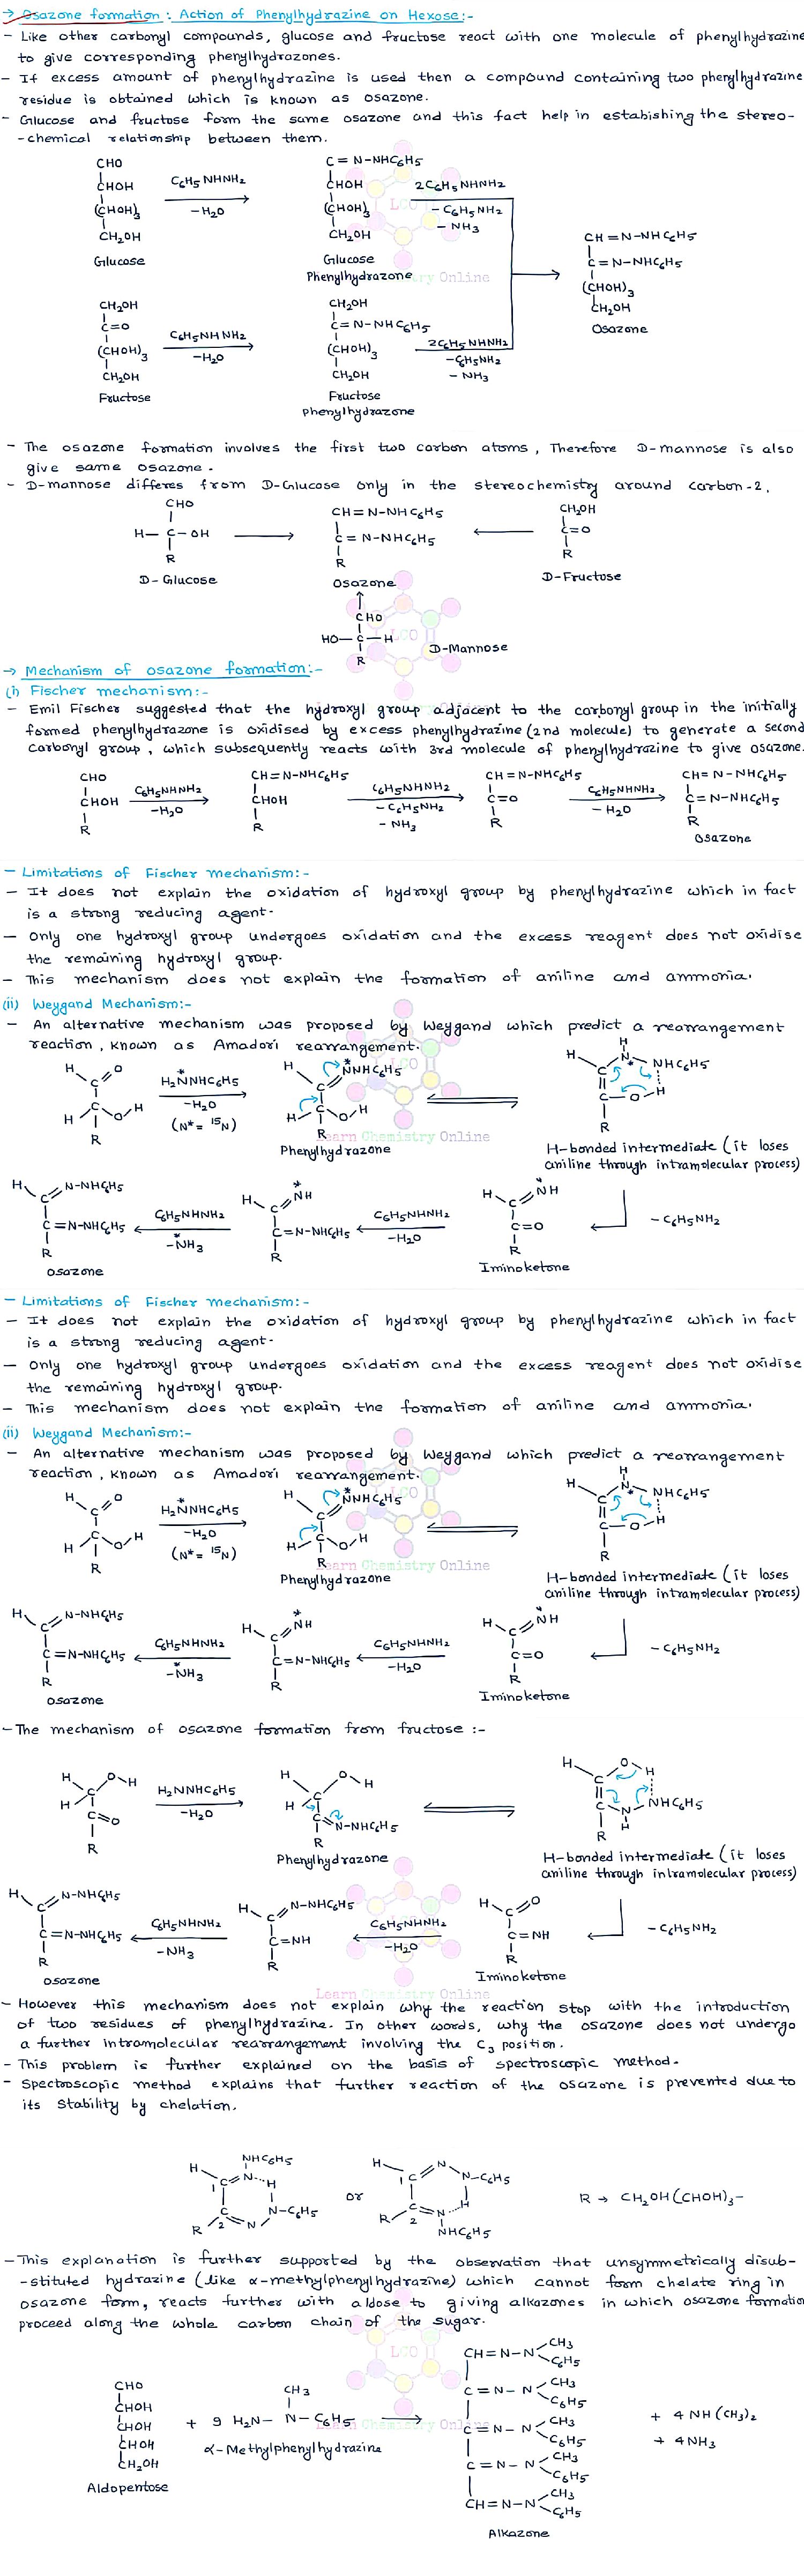 → Osazone formation: Action of Phenylhydrazine on Hexose:-
- Like other carbonyl compounds, glucose and fructose react with one molecule of phenylhydrazine
to give corresponding phenylhydrazones.
- If excess amount of phenylhydrazine is used then a compound containing two phenylhydrazine
residue is obtained which is known as osazone.
- Glucose and fructose form the same osazone and this fact help in estabishing the stereo-
-chemical relationship between them.
CHO
CHOH
(CHOH)3
CH2OH
Glucose
C6H5NHNH2
-H2O
C=N-NHC6H5
CHOH
(CHOH)3
CH2OH
Glucose
Phenylhydrazone
2C6H5NHNH2
-C6H5NH2
-NH3
CH=N-NHC6H5
C=N-NHC6H5
(CHOH)3
CH2OH
Osazone
CH2OH
C=O
(CHOH)3
CH2OH
Fructose
C6H5NHNH2
-H2O
CH2OH
C=N-NHC6H5
(CHOH)3
CH2OH
Fructose
phenylhydrazone
2C6H5NHNH2
-C6H5NH2
-NH3
- The osazone formation involves the first two carbon atoms, Therefore D-mannose is also
give same osazone.
- D-mannose differes from D-Glucose only in the stereochemistry around carbon-2.
CHO
H-C-OH
R
D-Glucose
CH=N-NHC6H5
C=N-NHC6H5
R
Osazone
CH2OH
C=O
R
D-Fructose
CHO
HO-C-H
R
D-Mannose
→ Mechanism of osazone formation:-
(i) Fischer mechanism:-
- Emil Fischer suggested that the hydroxyl group adjacent to the carbonyl group in the initially
formed phenylhydrazone is oxidised by excess phenylhydrazine (2nd molecule) to generate a second
carbonyl group, which subsequently reacts with 3rd molecule of phenylhydrazine to give osazone.
CHO
CHOH
R
C6H5NHNH2
-H2O
CH=N-NHC6H5
CHOH
R
C6H5NHNH2
-C6H5NH2
-NH3
CH=N-NHC6H5
C=O
R
C6H5NHNH2
-H2O
CH=N-NHC6H5
C=N-NHC6H5
R
Osazone
- Limitations of Fischer mechanism:-
- It does not explain the oxidation of hydroxyl group by phenylhydrazine which in fact
is a strong reducing agent.
- Only one hydroxyl group undergoes oxidation and the excess reagent does not oxidise
the remaining hydroxyl group.
- This mechanism does not explain the formation of aniline and ammonia.
(ii) Weygand Mechanism:-
- An alternative mechanism was proposed by Weygand which predict a rearrangement
reaction, known as Amadori rearrangement.
H C O
H C O H
R
H2N*NHC6H5
-H2O
(N*= 15N)
H C N*NHC6H5
H C O H
R
Phenylhydrazone
H
H C N* NHC6H5
C O H
R
H-bonded intermediate (it loses
aniline through intramolecular process)
-C6H5NH2
H C N*H
C=O
R
Iminoketone
C6H5NHNH2
-H2O
H C N*H
C=N-NHC6H5
R
C6H5NHNH2
-N*H3
H C N-NHC6H5
C=N-NHC6H5
R
Osazone
- Limitations of Fischer mechanism:-
- It does not explain the oxidation of hydroxyl group by phenylhydrazine which in fact
is a strong reducing agent.
- Only one hydroxyl group undergoes oxidation and the excess reagent does not oxidise
the remaining hydroxyl group.
- This mechanism does not explain the formation of aniline and ammonia.
(ii) Weygand Mechanism:-
- An alternative mechanism was proposed by Weygand which predict a rearrangement
reaction, known as Amadori rearrangement.
H C O
H C O H
R
H2N*NHC6H5
-H2O
(N*= 15N)
H C N*NHC6H5
H C O H
R
Phenylhydrazone
H
H C N* NHC6H5
C O H
R
H-bonded intermediate (it loses
aniline through intramolecular process)
-C6H5NH2
H C N*H
C=O
R
Iminoketone
C6H5NHNH2
-H2O
H C N*H
C=N-NHC6H5
R
C6H5NHNH2
-N*H3
H C N-NHC6H5
C=N-NHC6H5
R
Osazone
- The mechanism of osazone formation from fructose :-
H C O-H
H
C=O
R
H2NNHC6H5
-H2O
H C O H
H
C=N-NHC6H5
R
Phenylhydrazone
H C O H
C N NHC6H5
R H
H-bonded intermediate (it loses
aniline through intramolecular process)
-C6H5NH2
H C O
C=NH
R
Iminoketone
C6H5NHNH2
-H2O
H C N-NHC6H5
C=NH
R
C6H5NHNH2
-NH3
H C N-NHC6H5
C=N-NHC6H5
R
Osazone
- However this mechanism does not explain why the reaction stop with the introduction
of two residues of phenylhydrazine. In other words, why the osazone does not undergo
a further intromolecular rearrangement involving the C3 position.
- This problem is further explained on the basis of spectroscopic method.
- Spectroscopic method explains that further reaction of the osazone is prevented due to
its stability by chelation.
NHC6H5
H 1C N H
N-C6H5
R 2C N
or
H 1C N N-C6H5
H
R C2 N
NHC6H5
R → CH2OH(CHOH)3-
- This explanation is further supported by the observation that unsymmetrically disub-
-stituted hydrazine (like α-methylphenylhydrazine) which cannot form chelate ring in
osazone form, reacts further with aldose to giving alkazones in which osazone formation
proceed along the whole carbon chain of the sugar.
CHO
CHOH
CHOH
CHOH
CH2OH
Aldopentose
+ 9 H2N-N-C6H5
CH3
α-Methylphenylhydrazine
CH=N-N CH3 C6H5
C=N-N CH3 C6H5
C=N-N CH3 C6H5
C=N-N CH3 C6H5
CH=N-N CH3 C6H5
Alkazone
+ 4 NH(CH3)2
+ 4NH3
LCO
Learn Chemistry Online